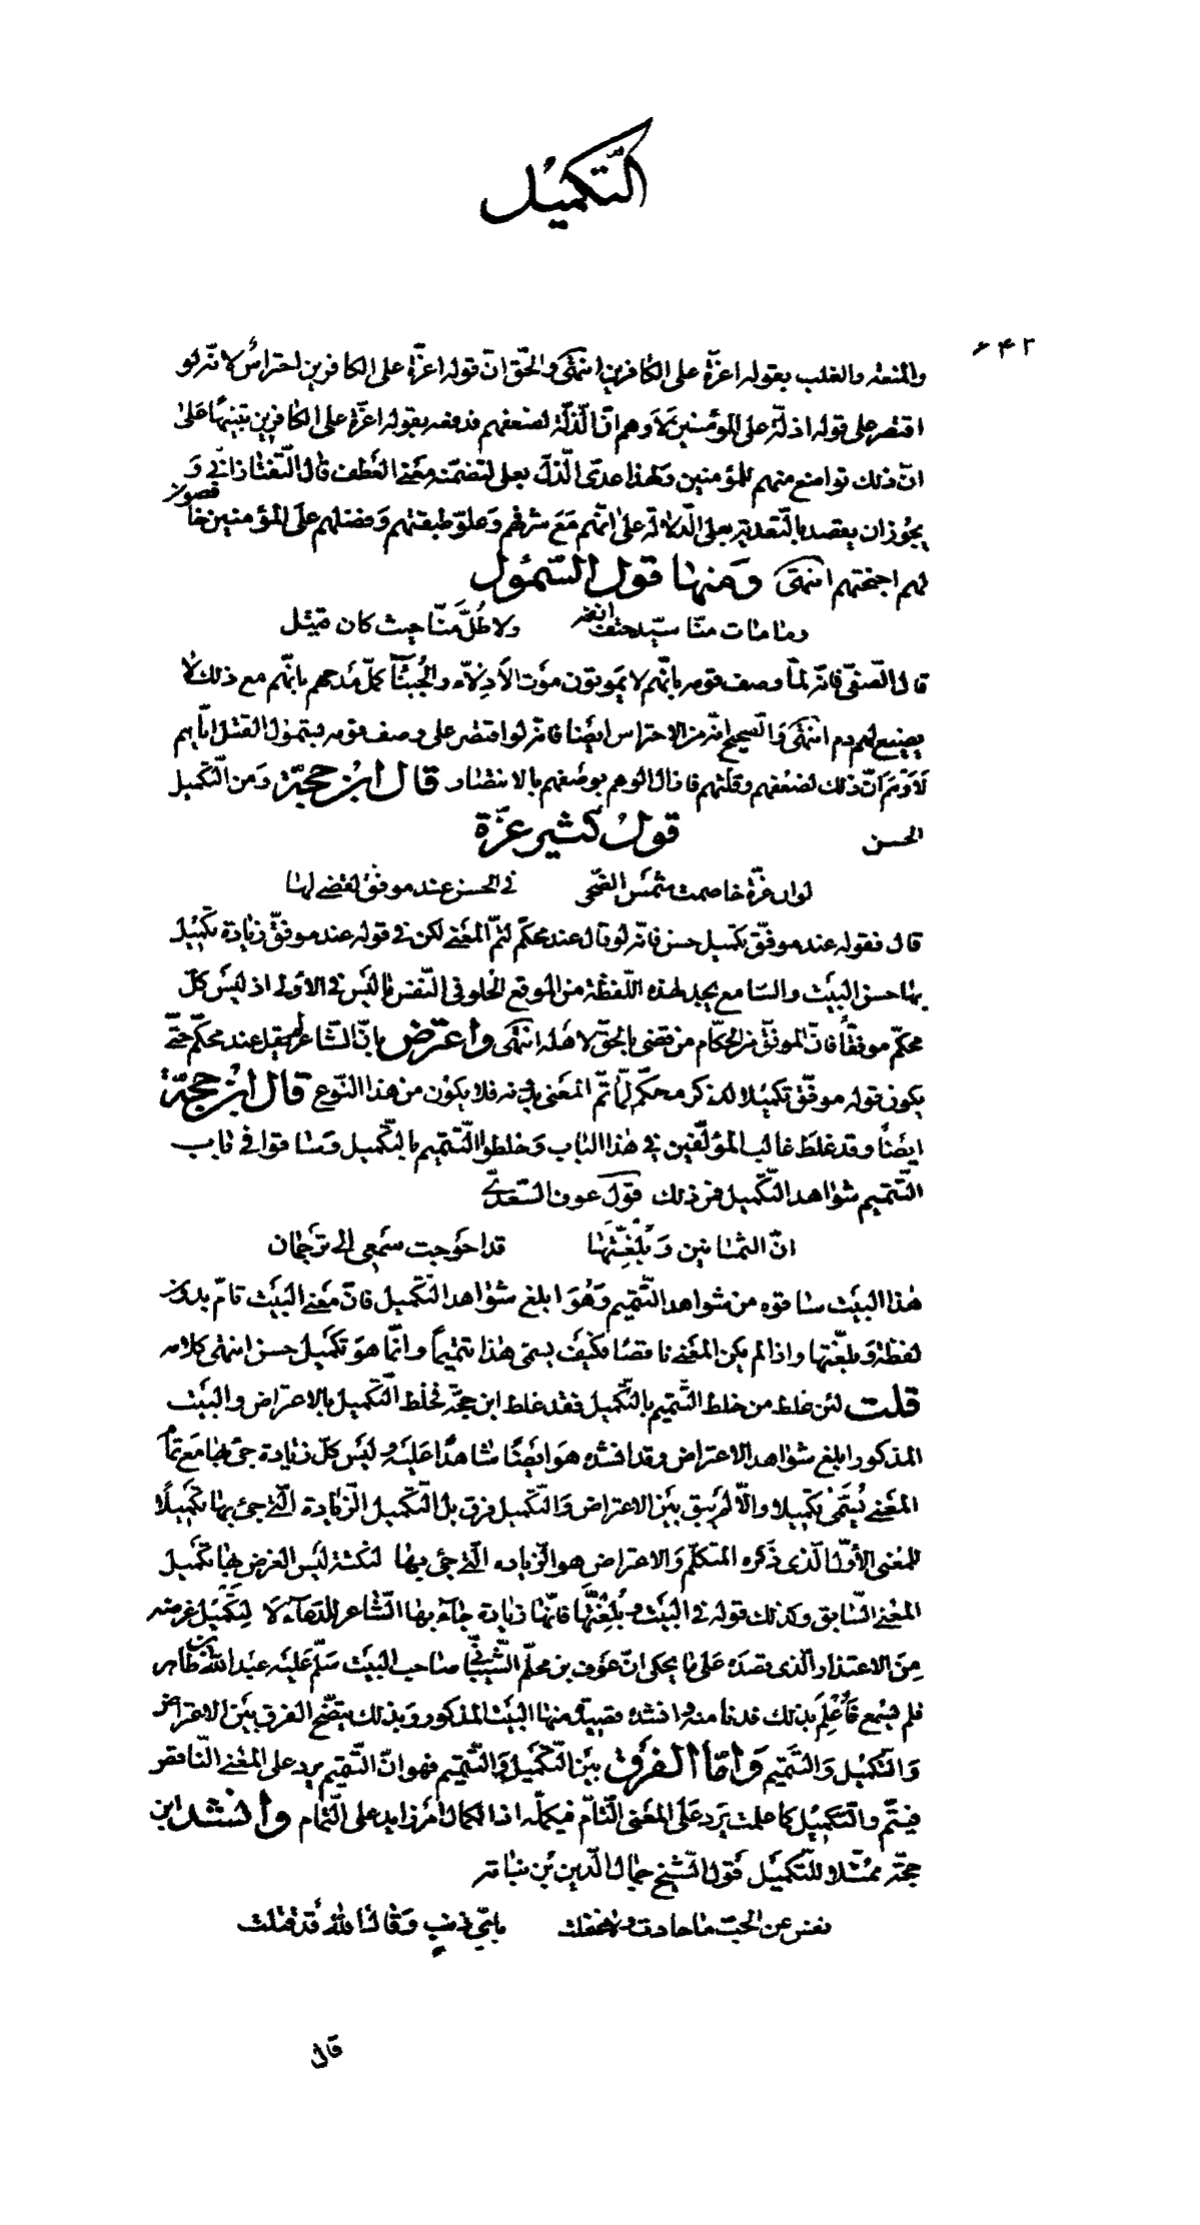 التّكميل
٦٤٢
والمنعة والغلب بقوله اعزّة على الكافرين انتهى والحقّ انّ قوله اعزّة على الكافرين احتراسٌ لانّه لو
اقتصر على قوله اذلّة على المؤمنين لَاَوهم انّ الذّلّة لضعفهم فدفعه بقوله اعزّة على الكافرين تنبيهًا على
انّ ذلك تواضع منهم للمؤمنين ولهذا عدّى الّذلّ بعلى لتضمّنه معنى العطف قال التّفتازانّي وَ
يجُوز ان يقصد بالتّعدية بعلى الدّلالة على انّهم مَعَ شرفهم وَعلوّ طبقتهم وَفضلهم علَى المؤمنين خافضون
لهم اجنحتهم انتهى وَمنها قول السّموُل
وما مات منّا سيّد حتف انفه ولا طُلَّ منّا حيث كان قتيل
قال الصّفيّ فانّه لمّا وصف قومه بانّهم لا يَموتون موَت الاَذِلاّء والجُبنَآء كمّل مَدحهم بانّهم مع ذلك لا
يضيع لهم دم انتهىَ وَالصّحيح انّه من الاحتراس ايضًا فانّه لو اقتصر على وصف قومه بشمول القتل ايّاهم
لَاَوهَمَ انّ ذلك لضعفهم وقلّتهم فازال الوهم بوصفهم بالانتصار قال ابن حجّة وَمن التّكميل
الحسن قول كثير عزّة
لو ان عزّة خاصمت شمسَ الضّحى في الحسن عند موفّق لقضى لها
قال فقوله عند موفّق تكميل حسن فانّه لو قال عند محكّم لتمّ المعنى لكن في قوله عند موفّق زيادة تكميل
بها حسن البيَت والسّامع يجد لهذه اللّفظة من الموقع الحلو في النّفس ما ليَس في الاولى اذ ليسَ كلّ
محكّم موفقًا فانّ الموفّق من الحكّام من قضى بالحقّ لاهله انتهى واعترض بانّ الشّاعر لم يقل عند محكّم حتّى
يكون قوله موفّق تكميلا لذكر محكّم لمّا تمّ المعنى بدونه فلا يكوُن من هذا النّوع قال ابن حجّة
ايضًا وقد غلطَ غالب المؤلّفين في هذا الباب وَخلطوا التّتميم بالتّكميل وَساقوا في باب
التّتميم شواهد التّكميل فمن ذلك قول عوف السّعديّ
انّ الثمانين وَبُلِّغتَها قد احوَجت سمَعي الى ترَجمان
هذا البيَت ساقوه من شواهد التّتميم وَهُوَ ابلغ شوَاهد التّكميل فانّ معَنى البيَت تامّ بدون
لفظة وبلّغتها واذا لم يكن المعنى ناقصًا فكيَف يسمّى هذا تتميماً وانّما هوَ تكمَيل حسن انتهى كلامه
قلت لئن غلط من خلط التّتميم بالتّكميل فقد غلط ابن حجّة بخلط التّكميل بالاعتراض والبيَت
المذكور ابلغ شواهد الاعتراض وقد انشده هوَ ايضًا شاهدًا عَليَه وَليَس كلّ زيادة جئ بها مَع تمام
المعَنى تُسَمّى تكميلا والّا لم يَبق بيَن الاعتراض وَالتّكميل فرق بل التّكميل الزّيادة الّتي جئ بها تكميلًا
للمعنى الأوّل الّذى ذكَره المتكلّم وَالاعتراض هو الزّياده الّتي جئ بها لنكتة ليَس الغرض بها تكميل
المعَنى السّابق وكذلك قوله في البيَت وَبُلِّغتَها فانّها زيادة جاء بها الشّاعر للدّعاء لَا لِتكميل غرضه
مِن الاعتذار الّذى قصدَه عَلى ما يحكى انّ عوَف بن محلّم الشّيبَانيّ صاحب البيَت سَلّم عَليَه عبَد الله بن طاهر
فلم يسمع فَأُعلِمَ بذلك فدنا منه وانشده قصيدة منها البيَت المذكور وبذلك يتضّح الفرق بيَن الاعتراض
وَالتّكميل وَالتّتميم وَامّا الفرَق بيَن التّكميل وَالتّتميم فهو انّ التّتميم يرد على المعَنى النّاقص
فيتمّه والتّكميُل كما علمت يَرد عَلىَ المعَنى التّامّ فيكمّله اذ الكمال اَمر زايد على التّمام وانشد ابن
حجّة ممثّلا للتّكميَل قَول الشّيخ جمال الدّين بَن نباتة
نفس عن الحبّ ما حادت ولا غفلت بايّ ذنبٍ وَقاك الله قَد قتلت
قال